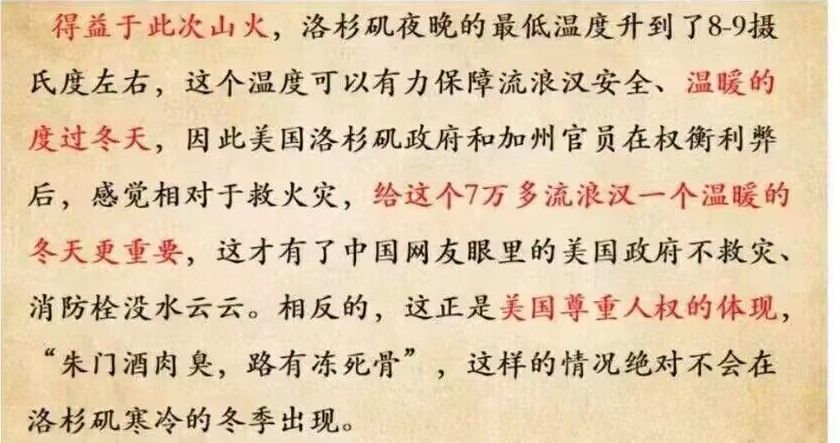 得益于此次山火，洛杉矶夜晚的最低温度升到了8-9摄
氏度左右，这个温度可以有力保障流浪汉安全、温暖的
度过冬天，因此美国洛杉矶政府和加州官员在权衡利弊
后，感觉相对于救火灾，给这个7万多流浪汉一个温暖的
冬天更重要，这才有了中国网友眼里的美国政府不救灾、
消防栓没水云云。相反的，这正是美国尊重人权的体现，
“朱门酒肉臭，路有冻死骨”，这样的情况绝对不会在
洛杉矶寒冷的冬季出现。